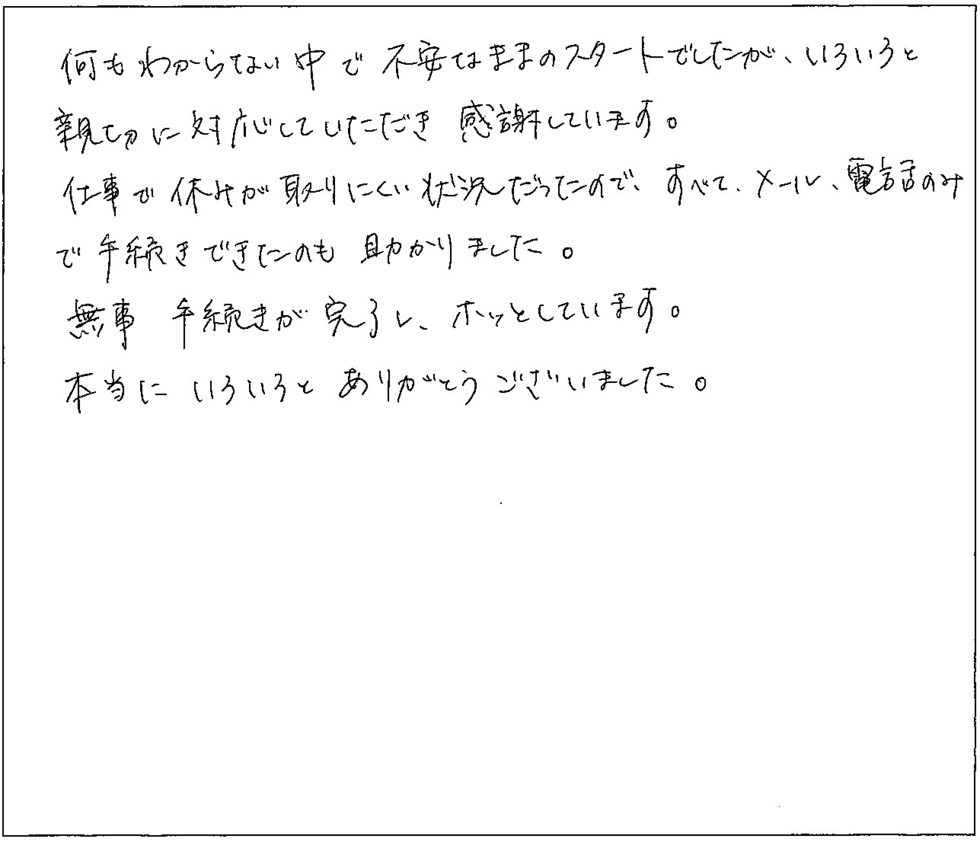 何もわからない中で不安なままのスタートでしたが、いろいろと
親切に対応していただき 感謝しています。
仕事で休みが取りにくい状況だったので、すべて、メール、電話のみ
で手続きできたのも助かりました。
無事 手続きが完了し、ホッとしています。
本当に いろいろと ありがとうございました。